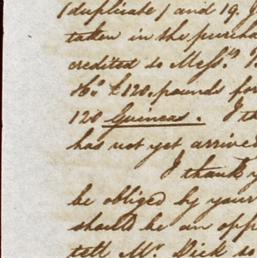 (duplicate) and 19. J
taken in the purcha
credited to Messrs
£120 pounds for
120 Guineas. I th
has not yet arrived
I thank y
be obliged by your
should be an opp
tell Mr. Dick so